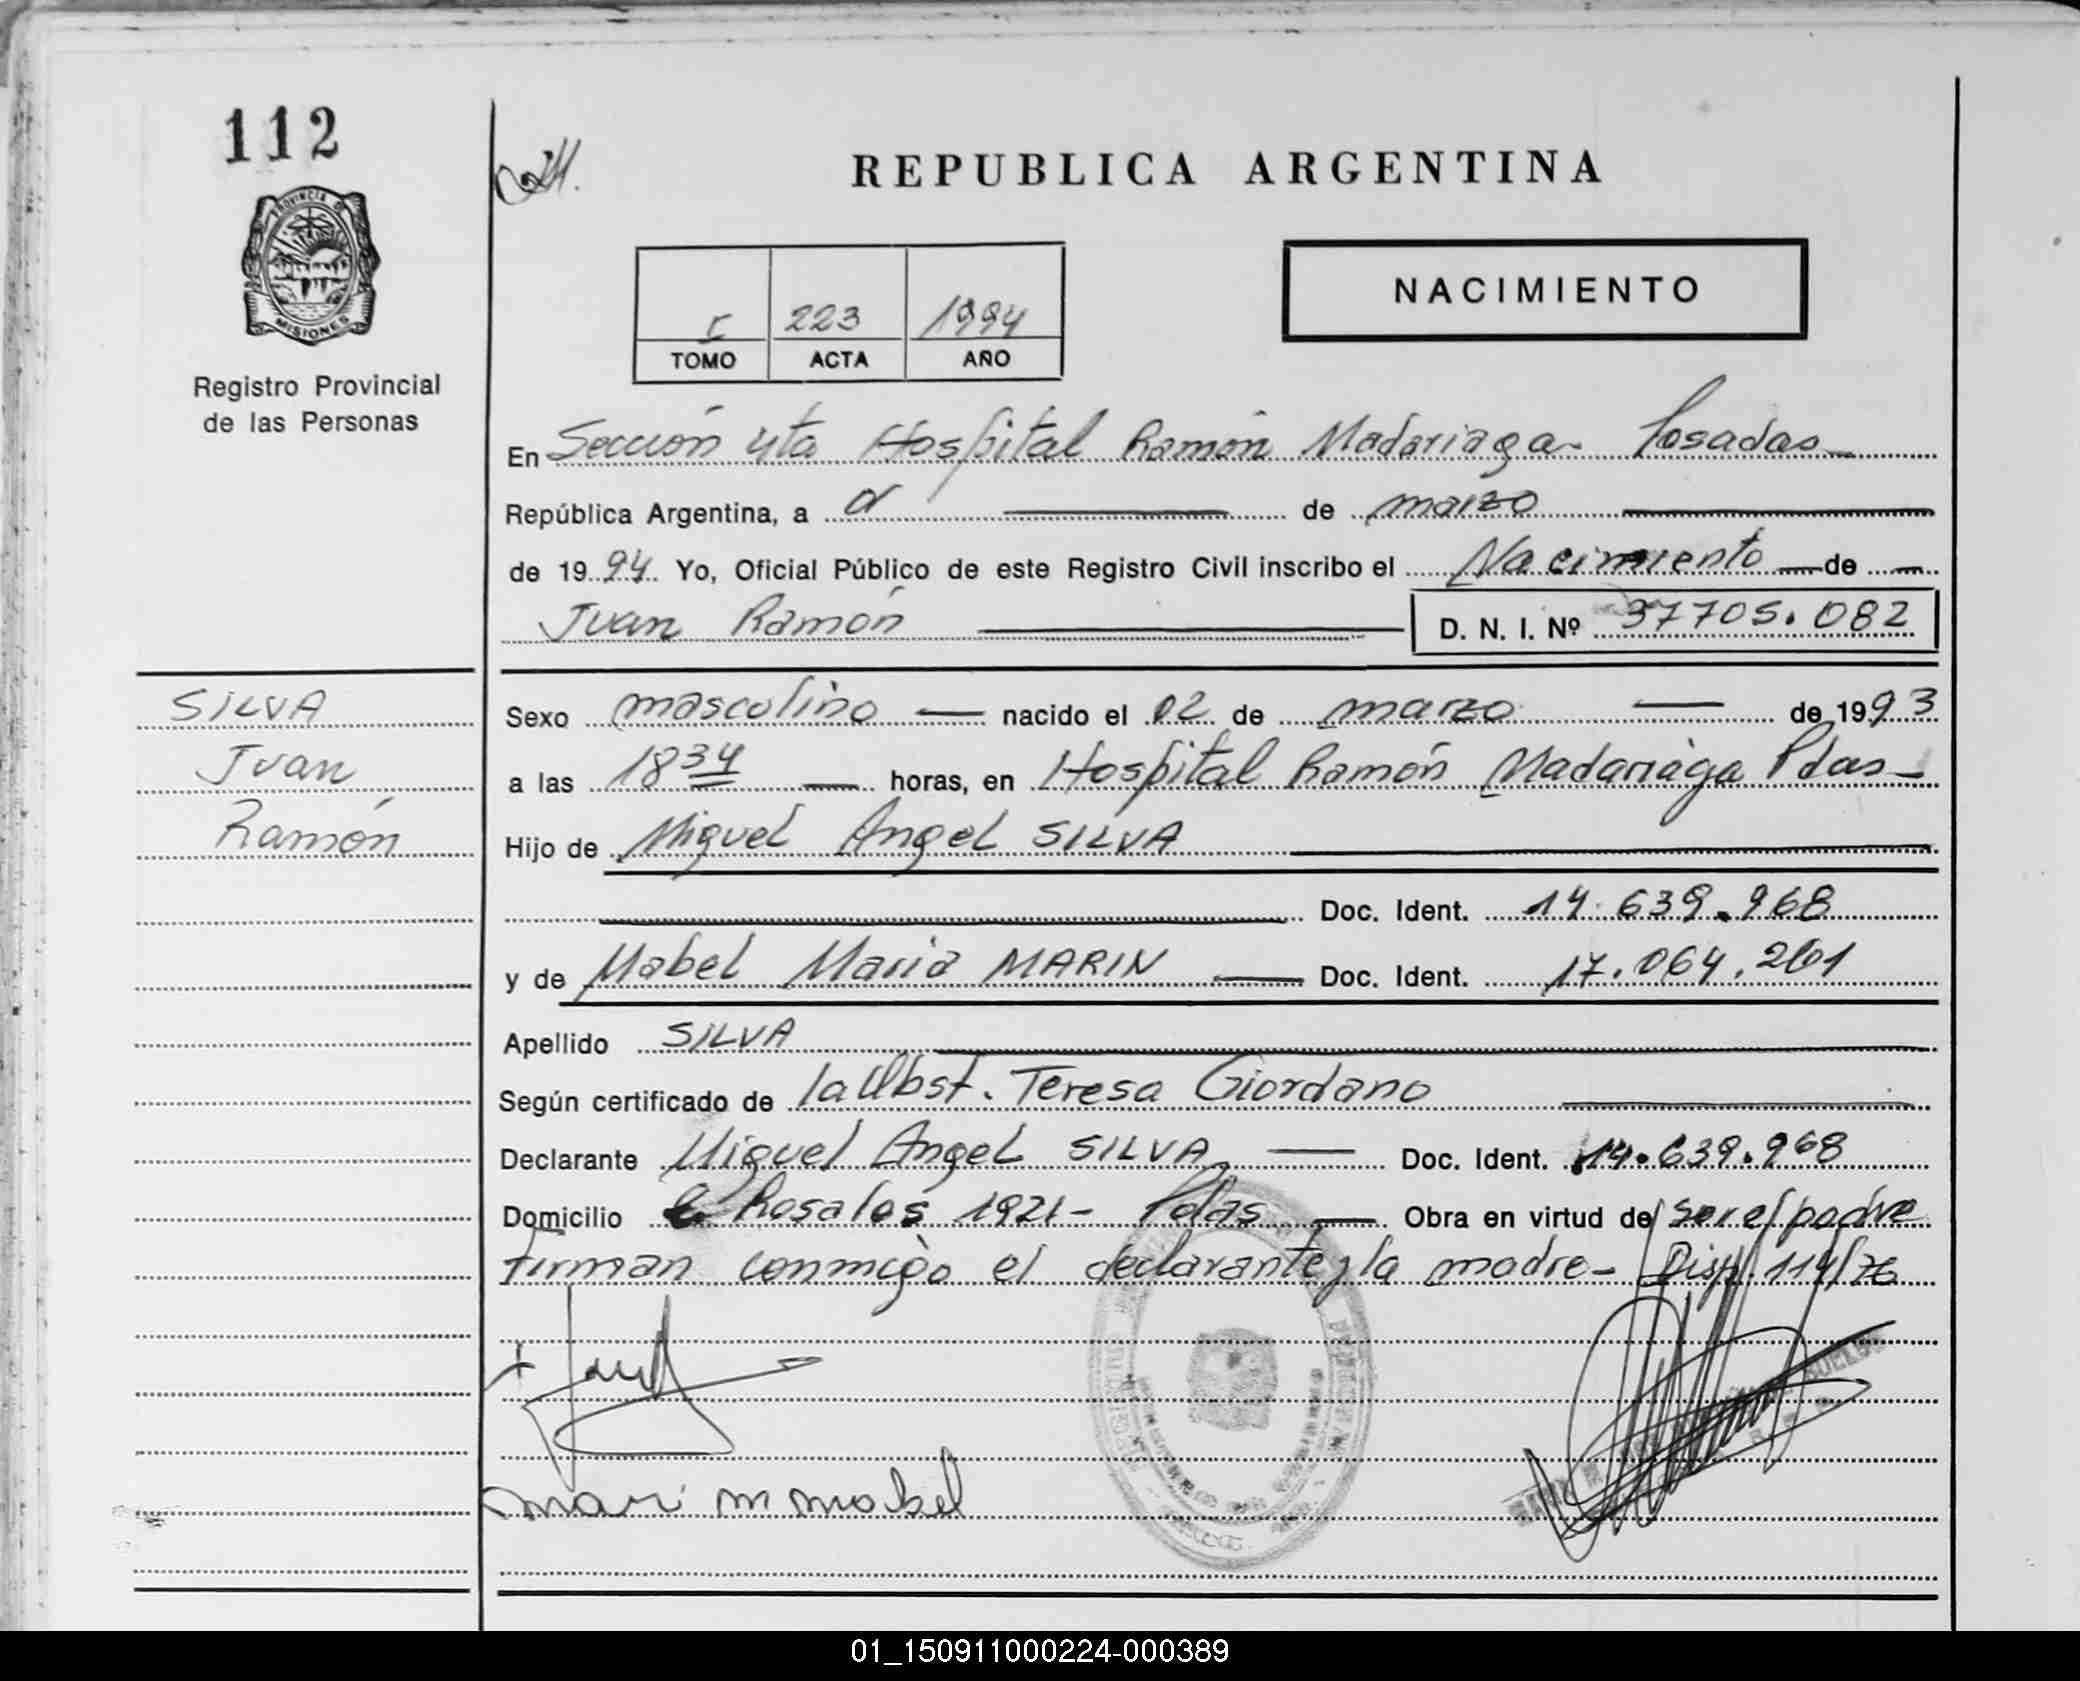 112
PROVINCIA DE
MISIONES
Registro Provincial
de las Personas
REPUBLICA ARGENTINA
NACIMIENTO
I 223 1994
TOMO ACTA AÑO
En Sección 4ta Hospital Ramón Madariaga Posadas
República Argentina, a de marzo
de 1994 Yo, Oficial Público de este Registro Civil inscribo el Nacimiento de
Juan Ramón D. N. I. Nº 37705.082
SILVA
Juan
Ramón
Sexo masculino nacido el 02 de marzo de 1993
a las 18 34 horas, en Hospital Ramón Madariaga Pdas
Hijo de Miguel Angel SILVA
Doc. Ident. 14.639.968
y de Mabel Maria MARIN Doc. Ident. 17.064.261
Apellido SILVA
Según certificado de la Obst. Teresa Giordano
Declarante Miguel Angel SILVA Doc. Ident. 14.639.968
Domicilio Rosales 1921- Pdas Obra en virtud de ser el padre
firman conmigo el declarante y la madre- Disp. 114/76
mari m mabel
01_150911000224-000389